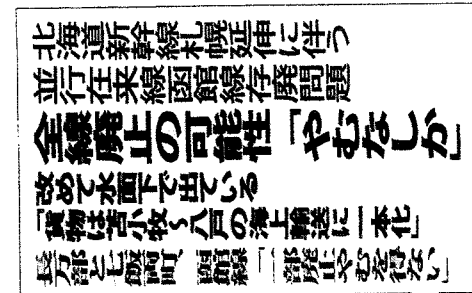 北海道新幹線札幌延伸に伴う
並行在来線函館線存廃問題
全線廃止の可能性「やむなしか」
改めて水面下で出ている
「貨物は苫小牧〜八戸の海上輸送に一本化」
長万部と七飯両町、函館線「一部廃止やむを得ない」